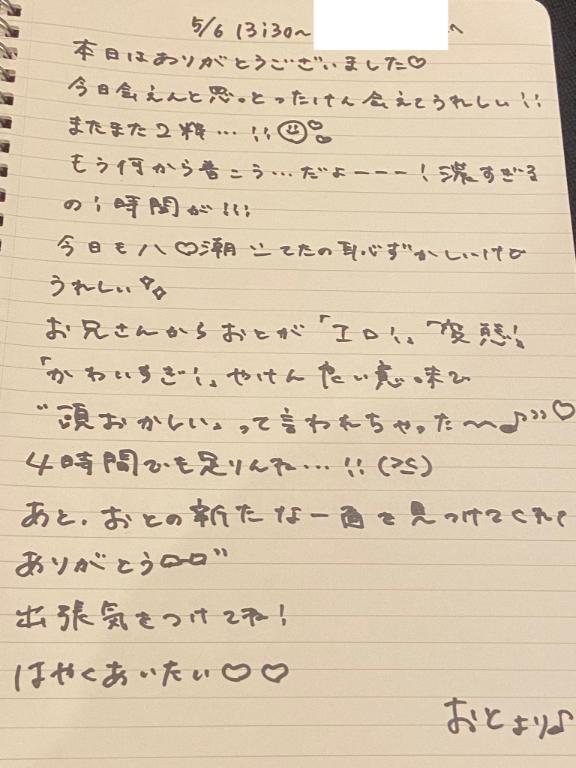 5/6 13:30〜 へ
本日はありがとうございました♡
今日会えんと思っとったけん会えてうれしい!!
またまた2粋…!!
もう何から書こう…だよーーー!濃すぎる
の!時間が!!!
今日もハ♡潮 してたの恥ずかしいけど
うれしい
お兄さんからおとが「エロ!」「変態!」
「かわいすぎ!」やけん 意味で
“頭おかしい„って言われちゃった〜〜♪”♡
4時間でも足りんね…!!(><)
あと、おとの新たな一面を見つけてくれて
ありがとう
出張気をつけてね!
はやくあいたい♡♡
おとより♪